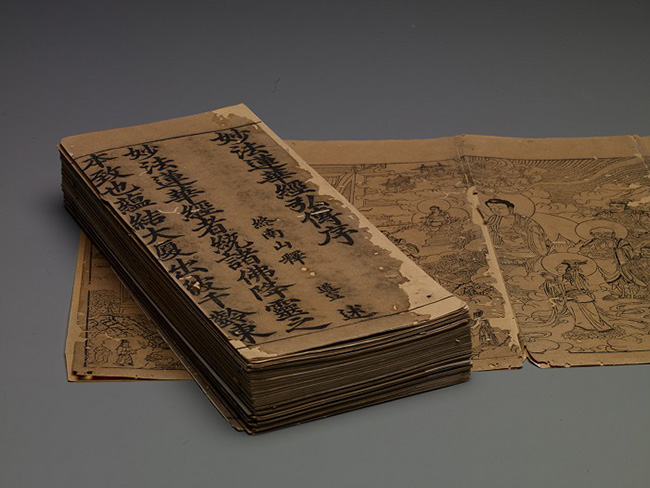 妙法蓮華經弘傳序
終南山釋 述
妙法蓮華經者統諸佛降靈之
本致也蘊結大夏出彼千齡東